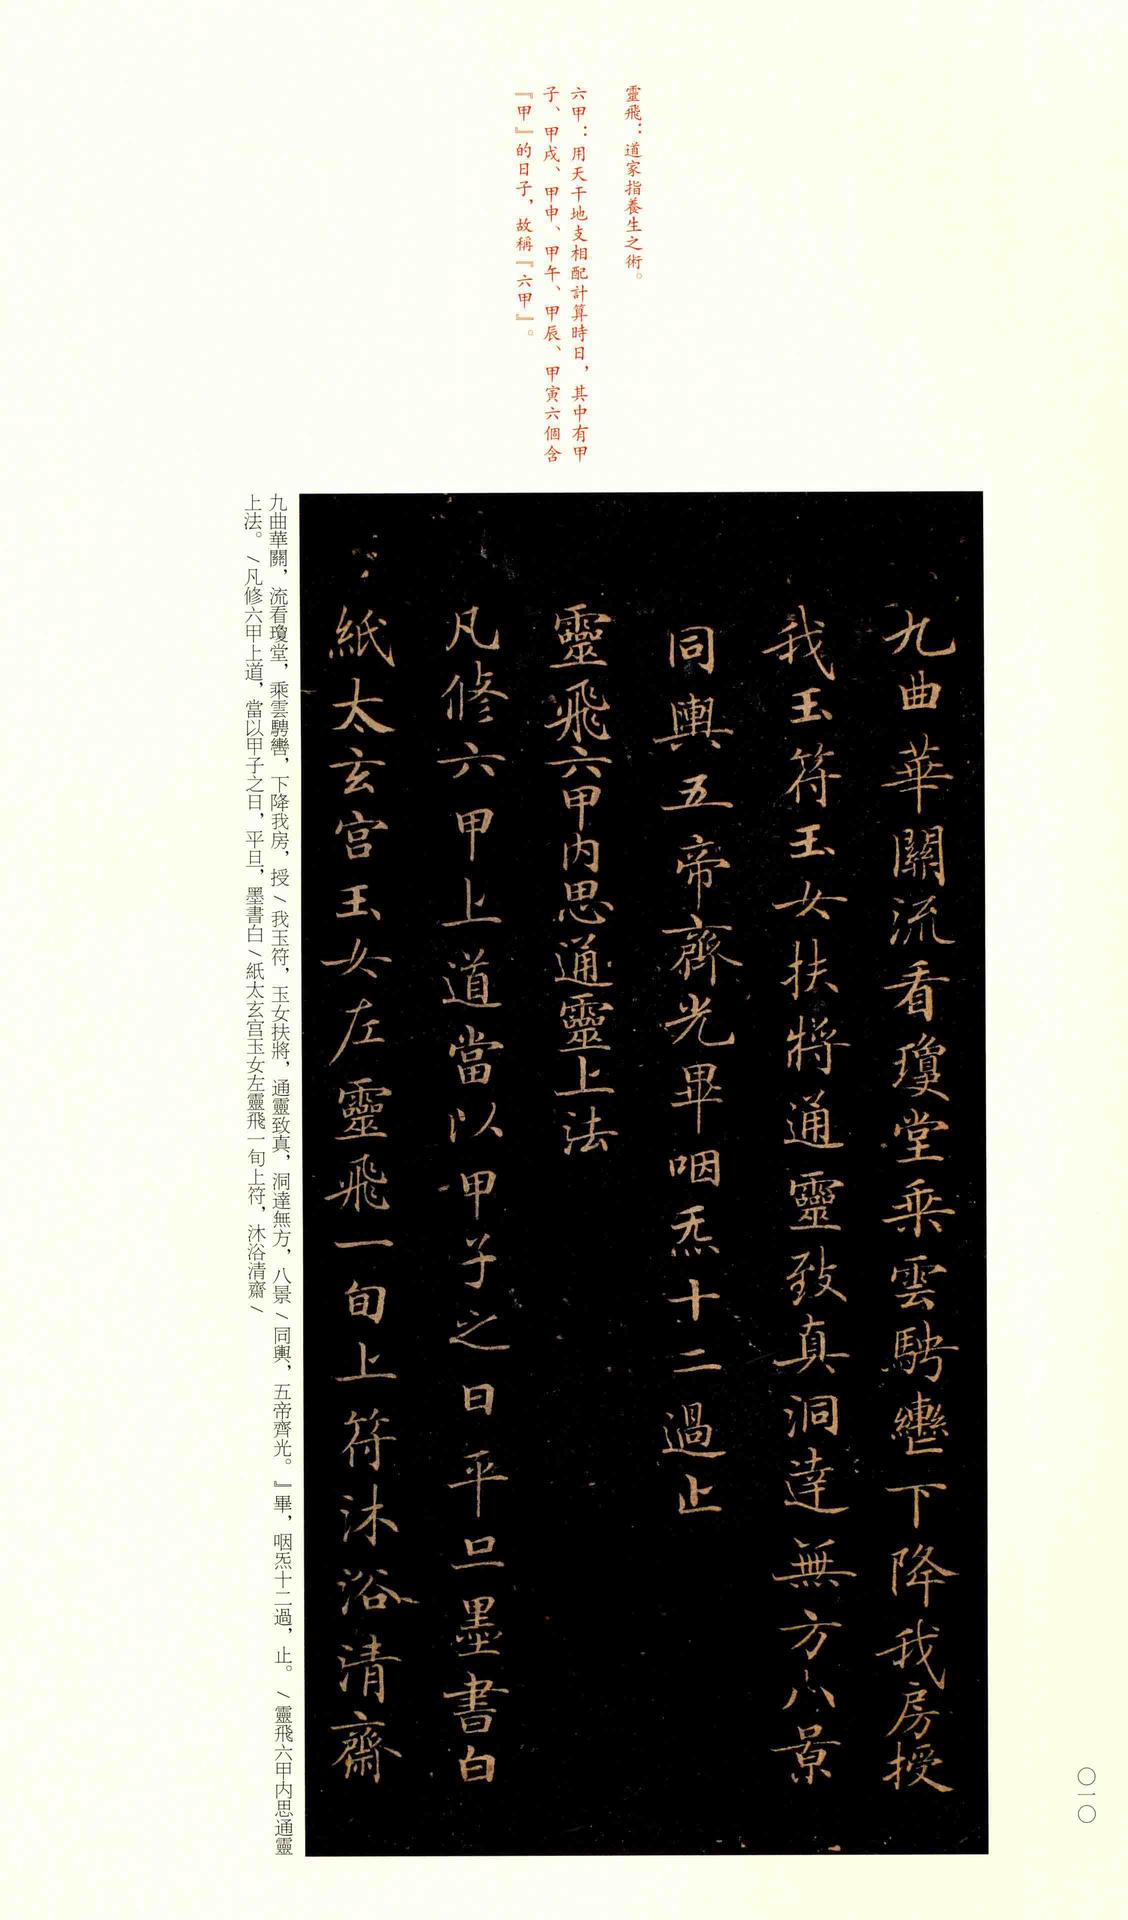 靈飛：道家指養生之術。
六甲：用天干地支相配計算時日，其中有甲
子、甲戌、甲申、甲午、甲辰、甲寅六個含
『甲』的日子，故稱『六甲』。
九曲華關流看瓊堂乘雲騁轡下降我房授
我玉符玉女扶將通靈致真洞達無方八景
同輿五帝齊光畢咽炁十二過止
靈飛六甲内思通靈上法
凡修六甲上道當以甲子之日平旦墨書白
紙太玄宫玉女左靈飛一旬上符沐浴清齋
九曲華關，流看瓊堂，乘雲騁轡，下降我房，授/我玉符，玉女扶將，通靈致真，洞達無方，八景/同輿，五帝齊光。』畢，咽炁十二過，止。/靈飛六甲内思通靈
上法。/凡修六甲上道，當以甲子之日，平旦，墨書白/紙太玄宫玉女左靈飛一旬上符，沐浴清齋/
〇一〇